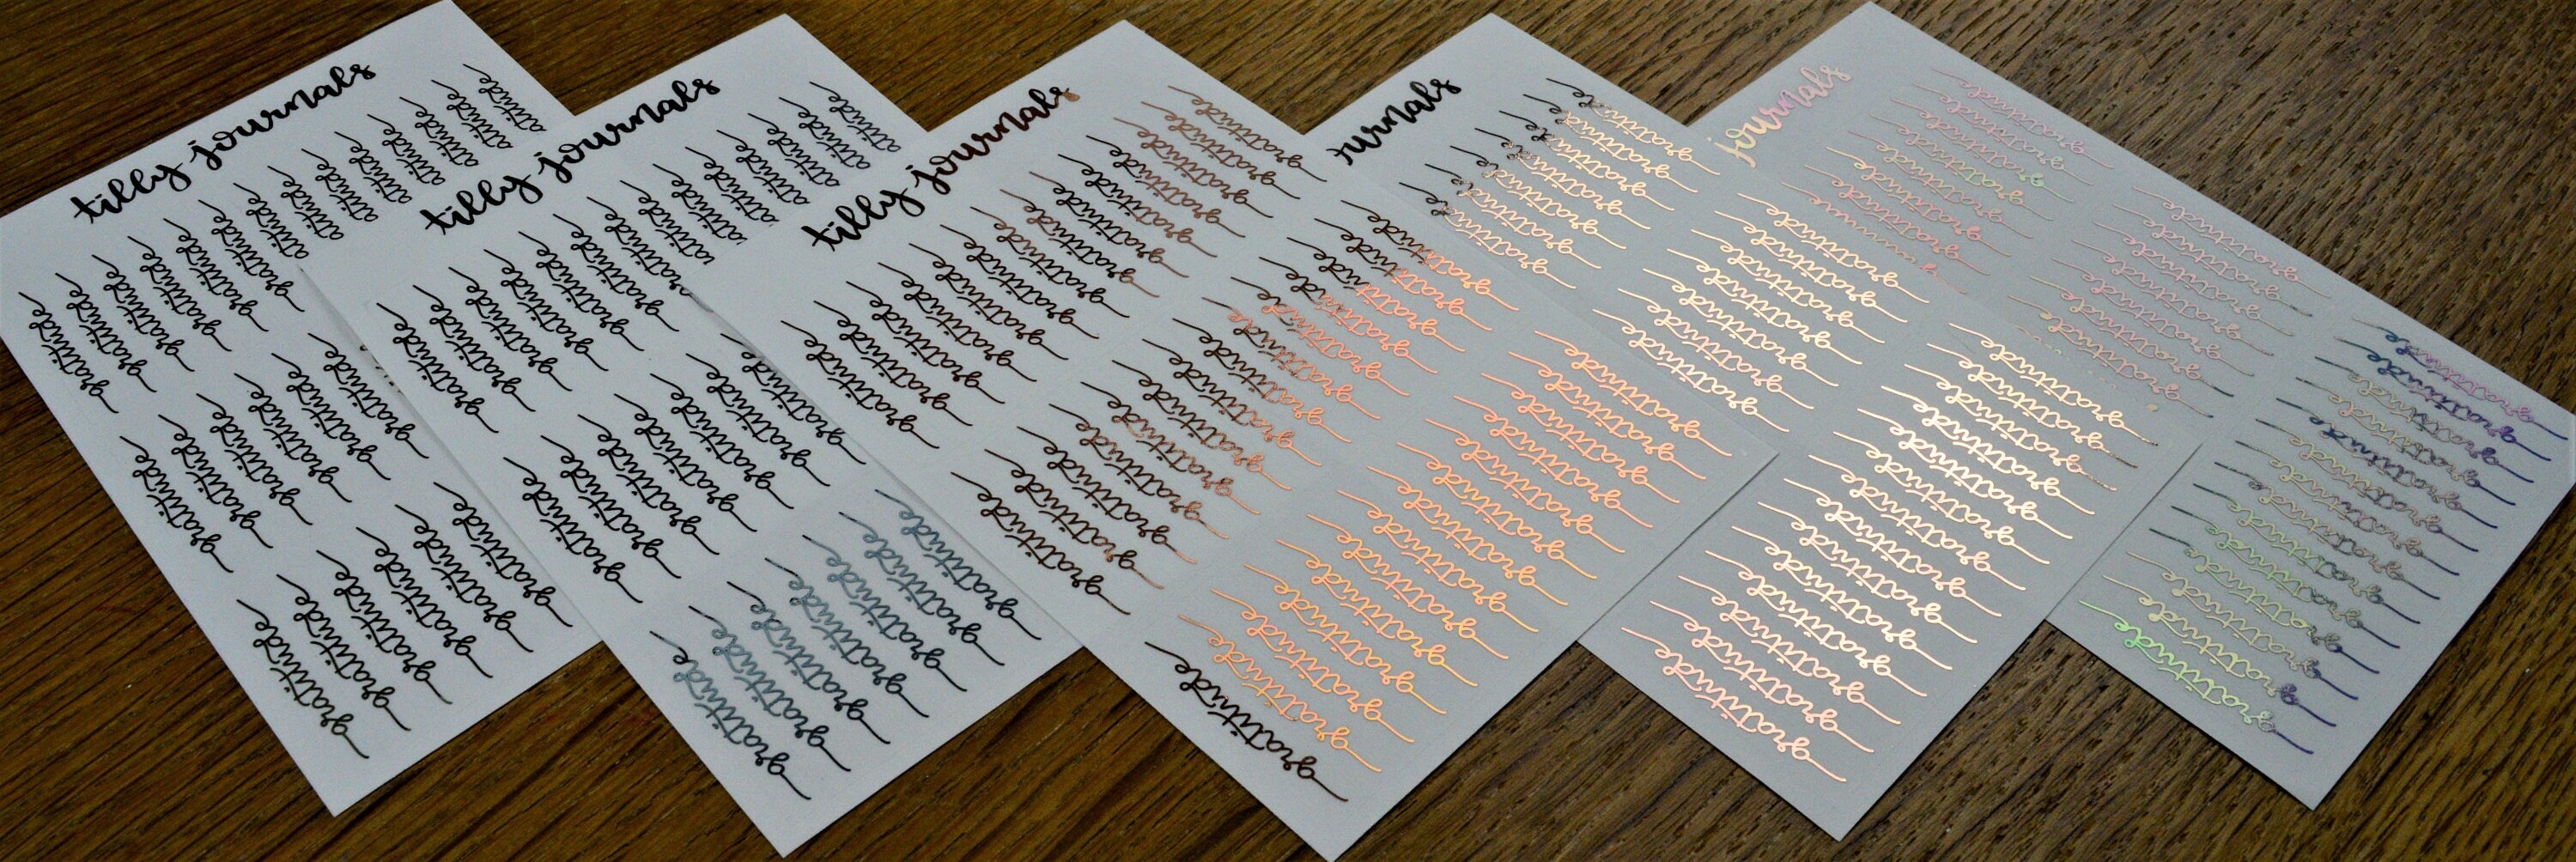 tilly journals
gratitude
gratitude
gratitude
gratitude
gratitude
gratitude
atitude
atitude
atitude
atitude
atitude
atitude
gratitude
gratitude
gratitude
gratitude
gratitude
gratitude
gratitude
gratitude
gratitude
gratitude
gratitude
tilly journals
gratitude
gratitude
gratitude
gratitude
gratitude
gratitude
atitude
atitude
atitude
atitude
atitude
atitude
gratitude
gratitude
gratitude
gratitude
gratitude
gratitude
gratitude
gratitude
gratitude
gratitude
gratitude
gratitude
tilly journals
gratitude
gratitude
gratitude
gratitude
gratitude
gratitude
gratitude
gratitude
gratitude
gratitude
gratitude
gratitude
gratitude
gratitude
gratitude
gratitude
gratitude
gratitude
gratitude
gratitude
gratitude
gratitude
gratitude
gratitude
gratitude
gratitude
gratitude
gratitude
gratitude
gratitude
gratitude
gratitude
gratitude
gratitude
gratitude
gratitude
urnals
gratitude
gratitude
gratitude
gratitude
gratitude
gratitude
gratitude
gratitude
gratitude
gratitude
gratitude
gratitude
gratitude
gratitude
gratitude
gratitude
gratitude
gratitude
gratitude
gratitude
gratitude
gratitude
gratitude
gratitude
journals
gratitude
gratitude
gratitude
gratitude
gratitude
gratitude
gratitude
gratitude
gratitude
gratitude
gratitude
gratitude
gratitude
gratitude
gratitude
gratitude
gratitude
gratitude
gratitude
gratitude
gratitude
gratitude
gratitude